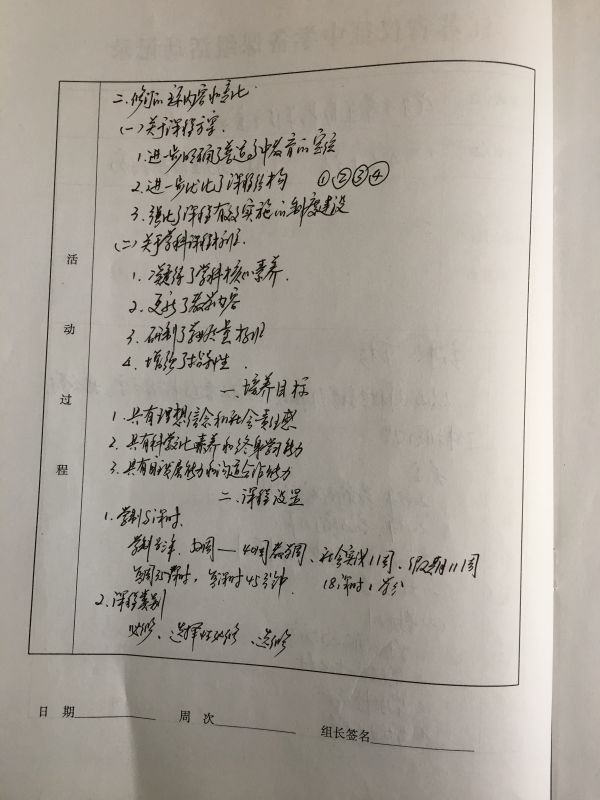 二、修订的主要内容和变化
(一)关于课程方案.
1.进一步明确了普通高中教育的定位
2.进一步优化了课程结构 ①②③④
3.强化了课程有效实施的制度建设
(二)关于学科课程标准.
1.凝练了学科核心素养.
2.更新了教学内容
3.研制了学业质量标准
4.增强了指导性.
一、培养目标
1.具有理想信念和社会责任感
2.具有科学文化素养和终身学习能力
3.具有自主发展能力和沟通合作能力
二、课程设置
1.学制与课时.
学制三年、52周—40周教学周、社会实践1周、假期11周
每周35课时,每课时45分钟. 18课时1学分
2.课程类别
必修、选择性必修、选修
活
动
过
程
日 期
周 次
组长签名